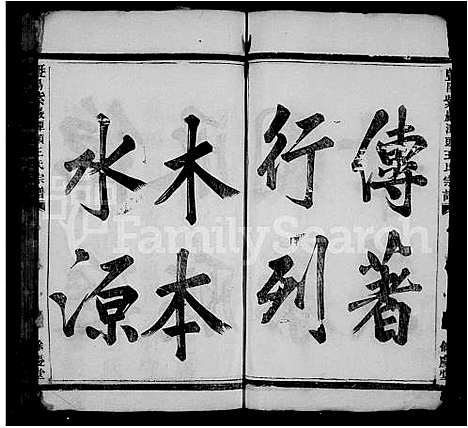 傳著
行列
木本
水源
FamilySearch